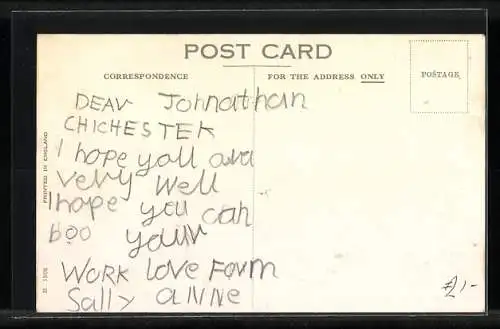 POST CARD
CORRESPONDENCE
FOR THE ADDRESS ONLY
POSTAGE
PRINTED IN ENGLAND
DEAV Johnathan
CHICHESTER
I hope yall ava
very Well
I hope you can
boo your
WORK love Form
Sally anne
£1-